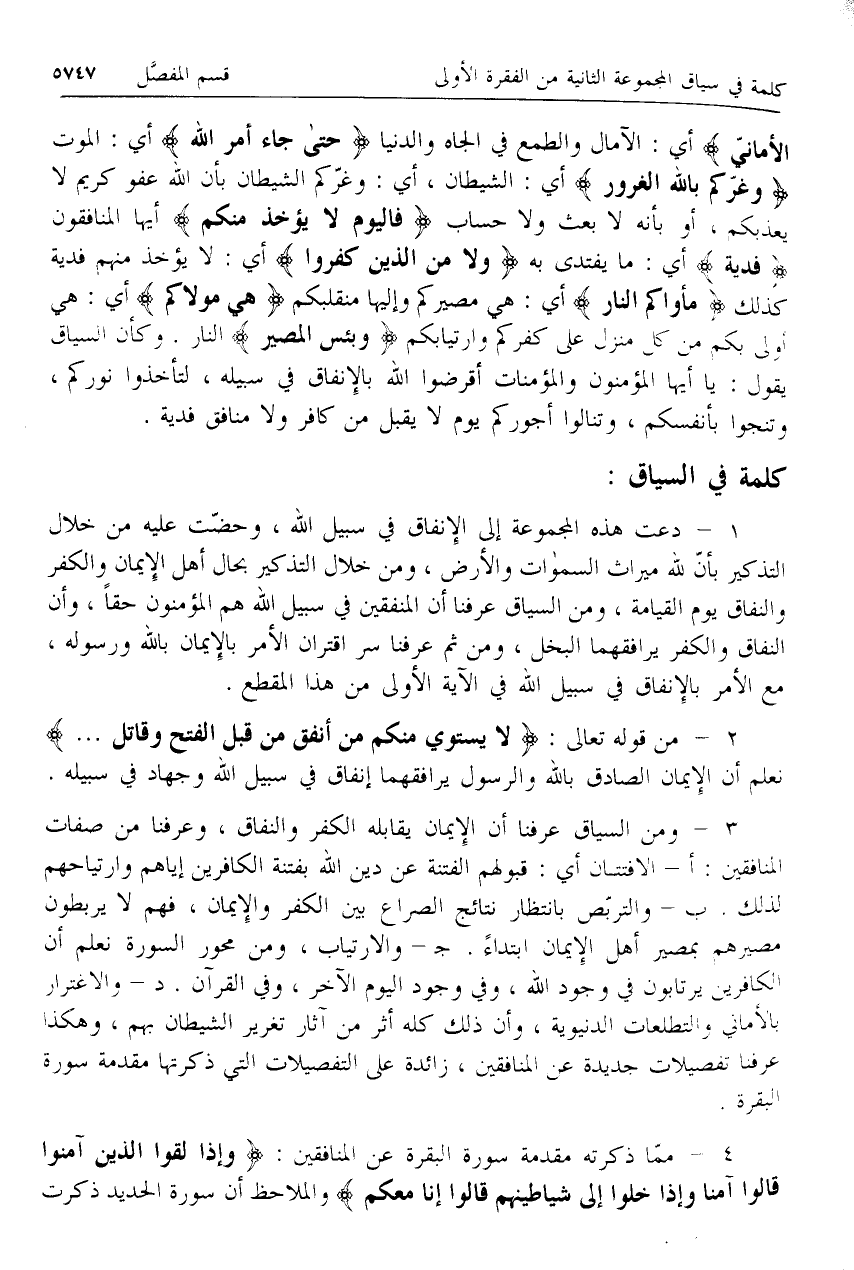 كلمة في سياق المجموعة الثانية من الفقرة الأولى قسم المفصَّل ٥٧٤٧
الأمانيّ ﴾ أي : الآمال والطمع في الجاه والدنيا ﴿ حتىٰ جاء أمر الله ﴾ أي : الموت
﴿ وغرّكم بالله الغرور ﴾ أي : الشيطان ، أي : وغرّكم الشيطان بأن الله عفو كريم لا
يعذبكم ، أو بأنه لا بعث ولا حساب ﴿ فاليوم لا يؤخذ منكم ﴾ أيها المنافقون
﴿ فدية ﴾ أي : ما يفتدى به ﴿ ولا من الذين كفروا ﴾ أي : لا يؤخذ منهم فدية
كذلك ﴿ مأواكم النار ﴾ أي : هي مصيركم وإليها منقلبكم ﴿ هي مولاكم ﴾ أي : هي
أولى بكم من كل منزل على كفركم وارتيابكم ﴿ وبئس المصير ﴾ النار . وكأن السياق
يقول : يا أيها المؤمنون والمؤمنات أقرضوا الله بالإنفاق في سبيله ، لتأخذوا نوركم ،
وتنجوا بأنفسكم ، وتنالوا أجوركم يوم لا يقبل من كافر ولا منافق فدية .
كلمة في السياق :
١ – دعت هذه المجموعة إلى الإنفاق في سبيل الله ، وحضّت عليه من خلال
التذكير بأنّ لله ميراث السمٰوات والأرض ، ومن خلال التذكير بحال أهل الإيمان والكفر
والنفاق يوم القيامة ، ومن السياق عرفنا أن المنفقين في سبيل الله هم المؤمنون حقاً ، وأن
النفاق والكفر يرافقهما البخل ، ومن ثم عرفنا سر اقتران الأمر بالإيمان بالله ورسوله ،
مع الأمر بالإنفاق في سبيل الله في الآية الأولى من هذا المقطع .
٢ – من قوله تعالى : ﴿ لا يستوي منكم من أنفق من قبل الفتح وقاتل ... ﴾
نعلم أن الإيمان الصادق بالله والرسول يرافقهما إنفاق في سبيل الله وجهاد في سبيله .
٣ – ومن السياق عرفنا أن الإيمان يقابله الكفر والنفاق ، وعرفنا من صفات
المنافقين : أ – الافتتان أي : قبولهم الفتنة عن دين الله بفتنة الكافرين إياهم وارتياحهم
لذلك . ب – والتربّص بانتظار نتائج الصراع بين الكفر والإيمان ، فهم لا يربطون
مصيرهم بمصير أهل الإيمان ابتداءً . جـ – والارتياب ، ومن محور السورة نعلم أن
الكافرين يرتابون في وجود الله ، وفي وجود اليوم الآخر ، وفي القرآن . د – والاغترار
بالأماني والتطلعات الدنيوية ، وأن ذلك كله أثر من آثار تغرير الشيطان بهم ، وهكذا
عرفنا تفصيلات جديدة عن المنافقين ، زائدة على التفصيلات التي ذكرتها مقدمة سورة
البقرة .
٤ – ممّا ذكرته مقدمة سورة البقرة عن المنافقين : ﴿ وإذا لقوا الذين آمنوا
قالوا آمنا وإذا خلوا إلى شياطينهم قالوا إنا معكم ﴾ والملاحظ أن سورة الحديد ذكرت